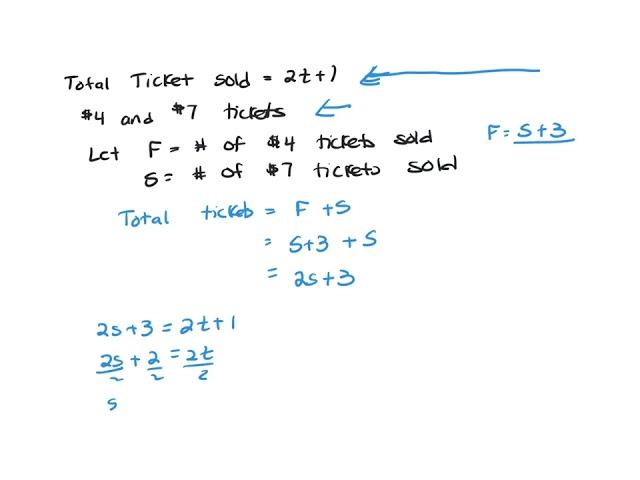 Total Ticket sold = 2t+1
$4 and $7 tickets
Let F = # of $4 tickets sold
F = S+3
S = # of $7 tickets sold
Total tickets = F + S
= S+3 + S
= 2s+3
2s+3 = 2t+1
2s/2 + 2/2 = 2t/2
s